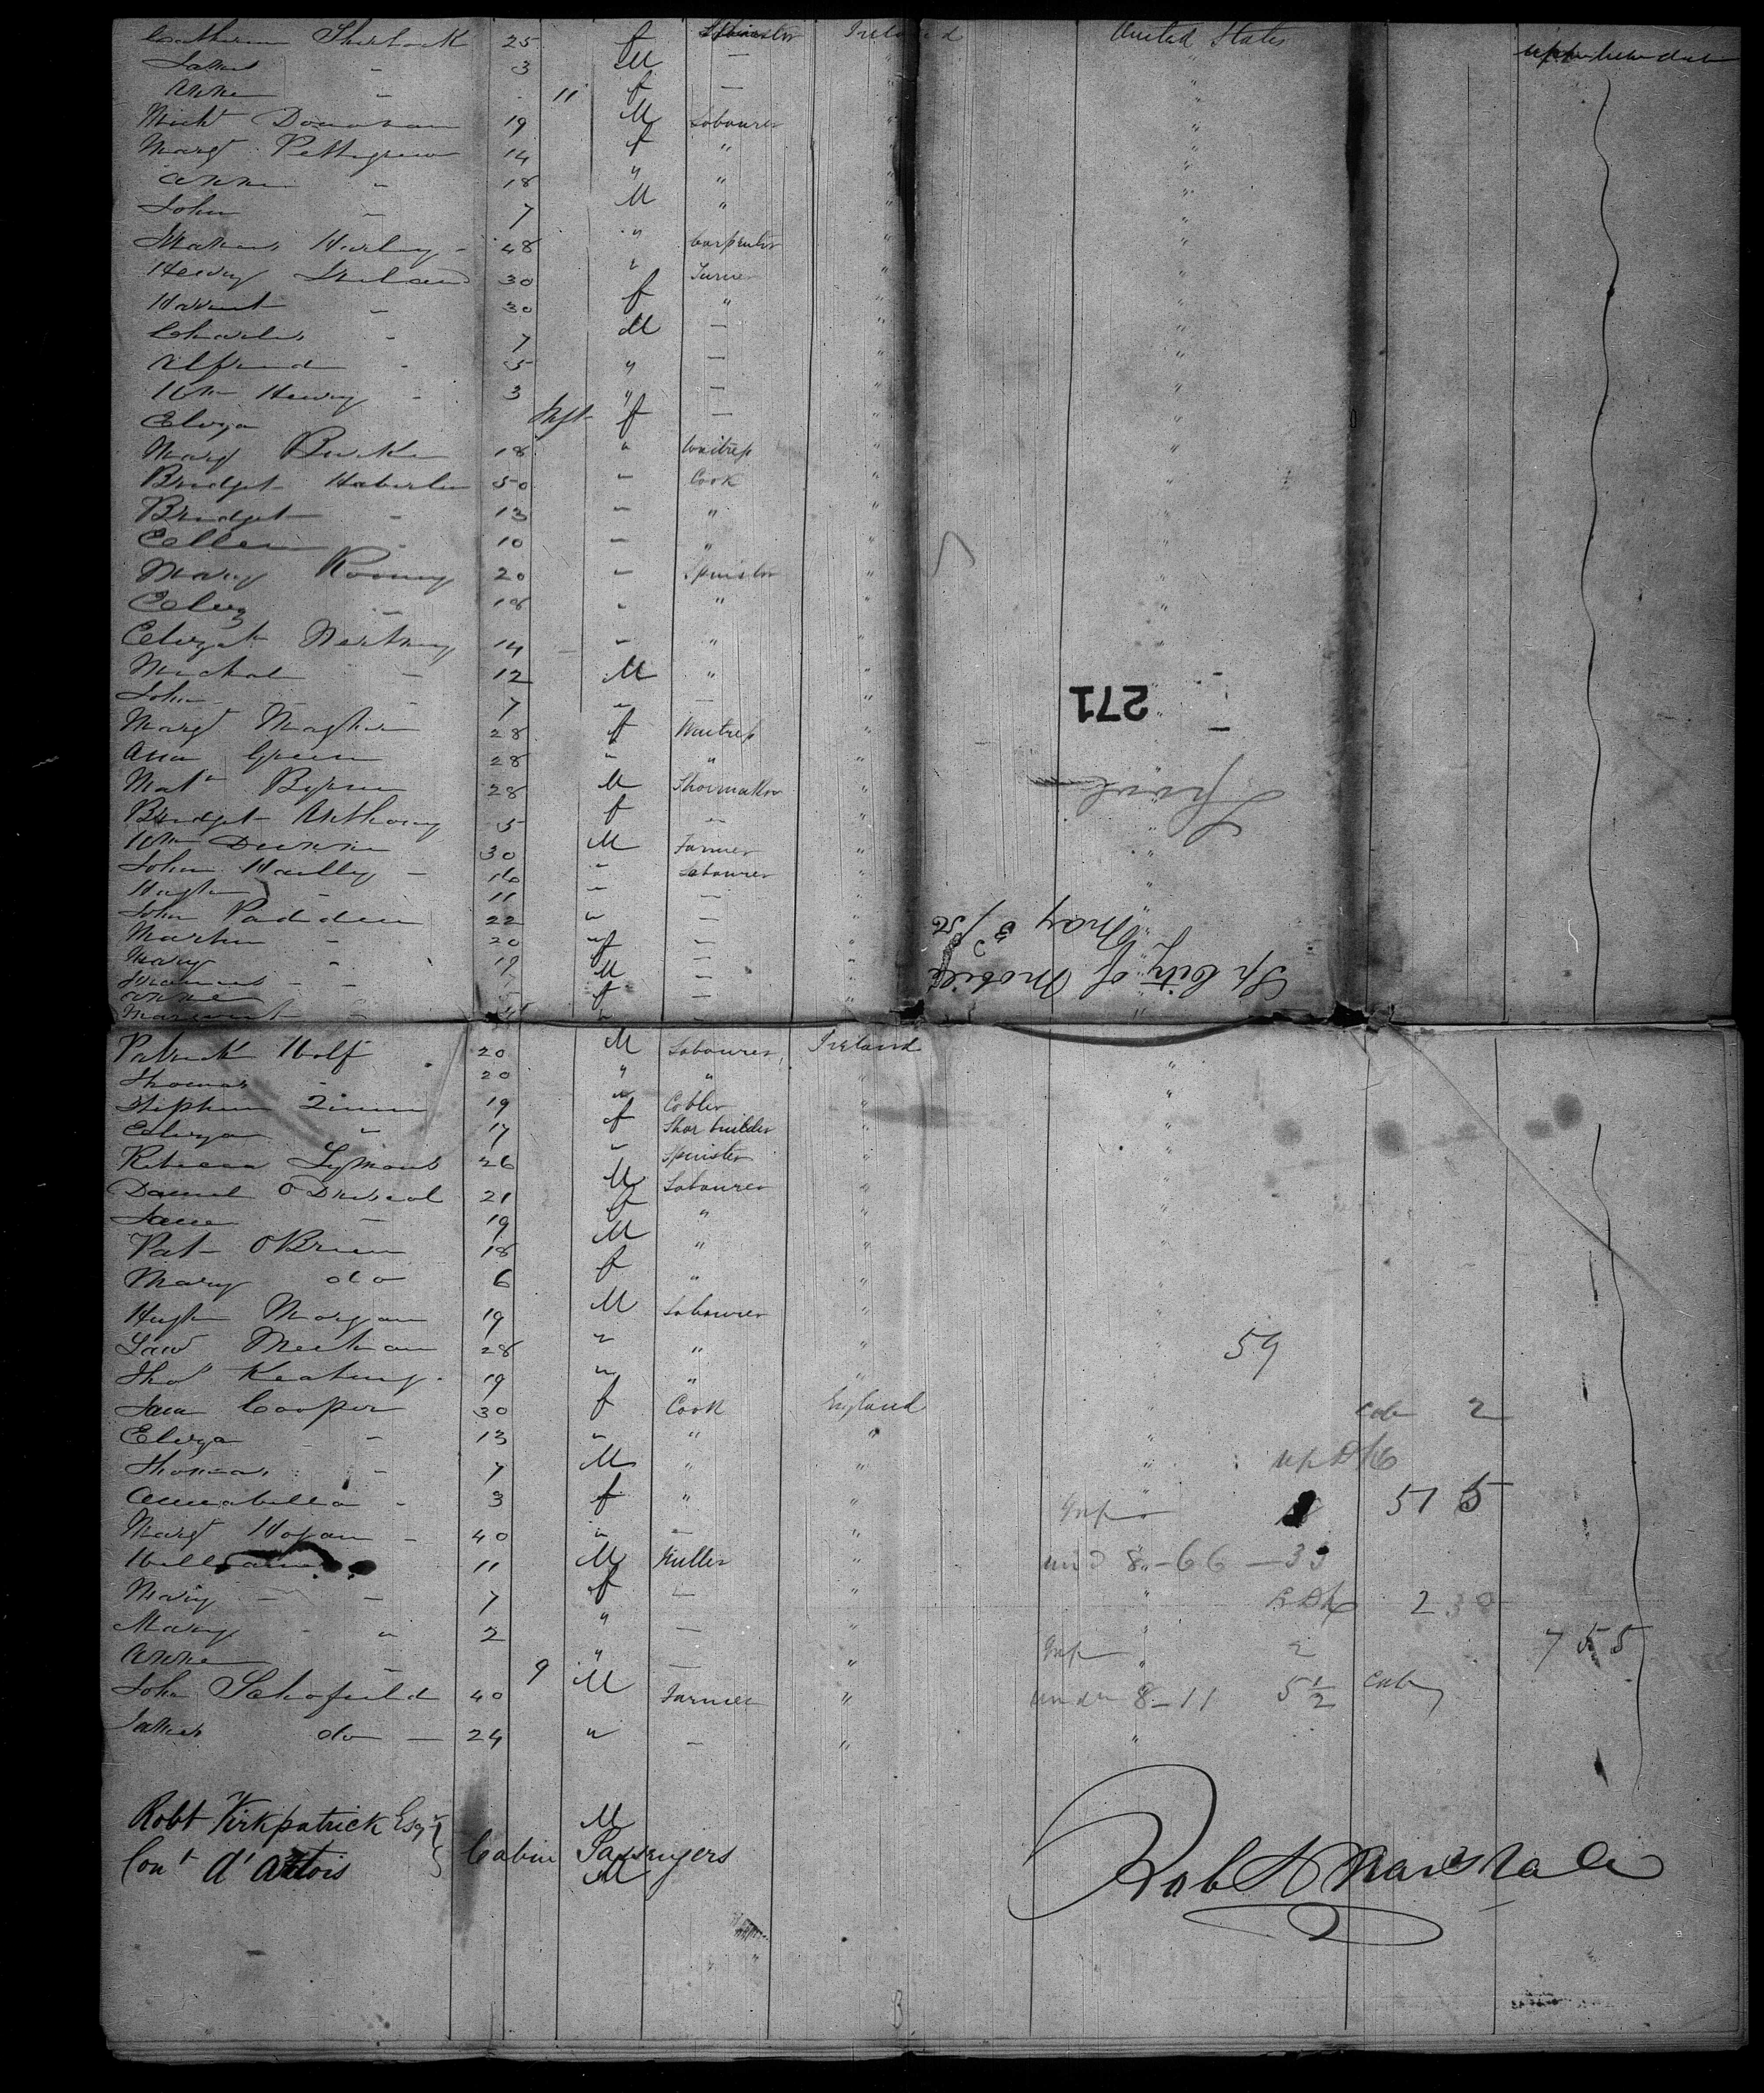 Catherine Sherlock 25 f Spinster Ireland United States upper between decks
James - 3 M — "
Anne - 11 f — "
Michl Donovan 19 M Labourer "
Margt Pettigrew 14 f " "
Anne " 18 " " "
John - 7 M " "
Hurley - 48 " Carpenter "
Henry Ireland 30 " Farmer "
Harriet - 30 f " "
Charles - 7 M — "
Alfred - 5 " — "
Wm Henry - 3 " — "
Eliza Inft f — "
Mary Burke 18 " Waitress "
Bridget Haberlin 50 " Cook "
Bridget - 13 " " "
Ellen - 10 " " "
Mary Rooney 20 " Spinster "
Eliza - 18 " " "
Elizath 14 " " "
Michael - 12 M " "
John - 7 " — "
Margt Magher 28 f Waitress "
Ann Green 28 " " "
Matw Byrne 28 M Shoemaker "
Bridget Anthony 5 f — "
Wm Dunne 30 M Farmer "
John Hailly - 16 " Labourer "
Hugh - 11 " — "
John Padden 22 " — "
Martin - 20 " — "
Mary - 19 f — "
Francis - - M — "
Anne f — "
Margaret - " — "
271
Sp City of Mobile
May 3d/56
Patrick Wolf 20 M Labourer Ireland "
Thomas - 20 " " "
Stephen 19 " Cobler "
Eliza " 17 f Shoe builder "
Rebecca Symons 26 " Spinster "
Daniel O Driscol 21 M Labourer "
Jane - 19 f " "
Pat OBrien 18 M " "
Mary do 6 f " "
Hugh Morgan 19 M Labourer "
Law Meehan 28 " " " 59
Thos Keating 19 " " "
Jane Cooper 30 f Cook England " cab 2
Eliza - 13 " " "
Thomas - 7 M " " up Dk
Annabella - 3 f " "
Margt Hogan - 40 " — " Inf 515
William 11 M Miller " und 8 - 66 - 33
Mary - - 7 f — " 238
Mary - " 2 " — "
Anne - 9 " — " Inf 2 755
John Schofield 40 M Farmer " under 8 - 11 5½ cab
James do — 24 " — "
Robt Kirkpatrick Esqr M
Cabin Passengers
Cont d'Artois M
Robt Marshall